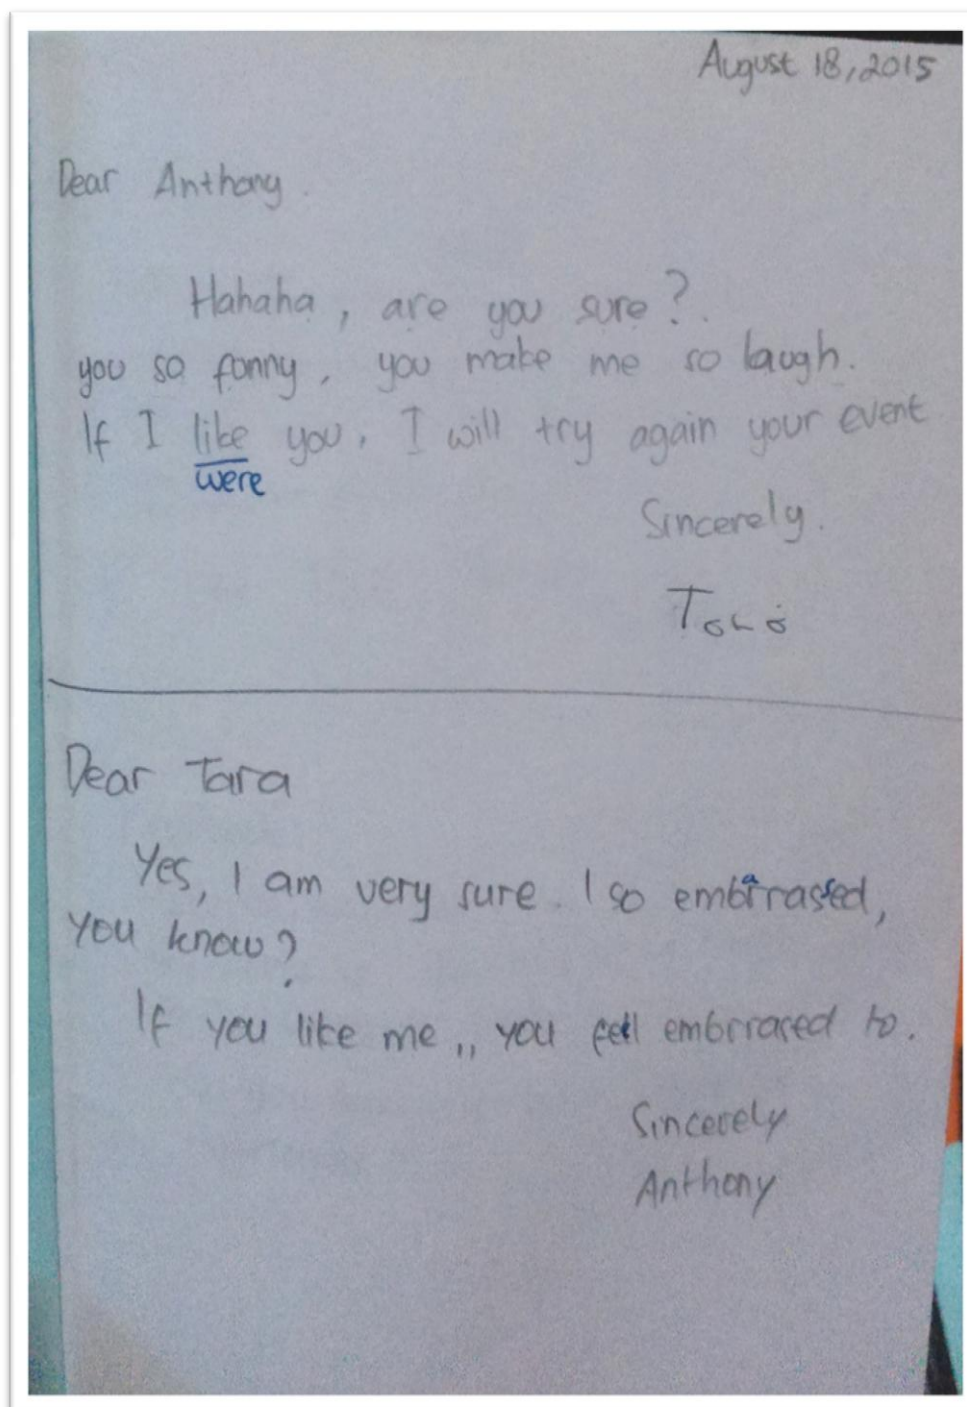 August 18, 2015
Dear Anthony.
Hahaha, are you sure?.
you so fonny, you make me so laugh.
If I like you, I will try again your event
were
Sincerely.
Dear Tara
Yes, I am very sure. I so embarrassed,
you know?
If you like me,, you feel embrraced to.
Sincerely
Anthony